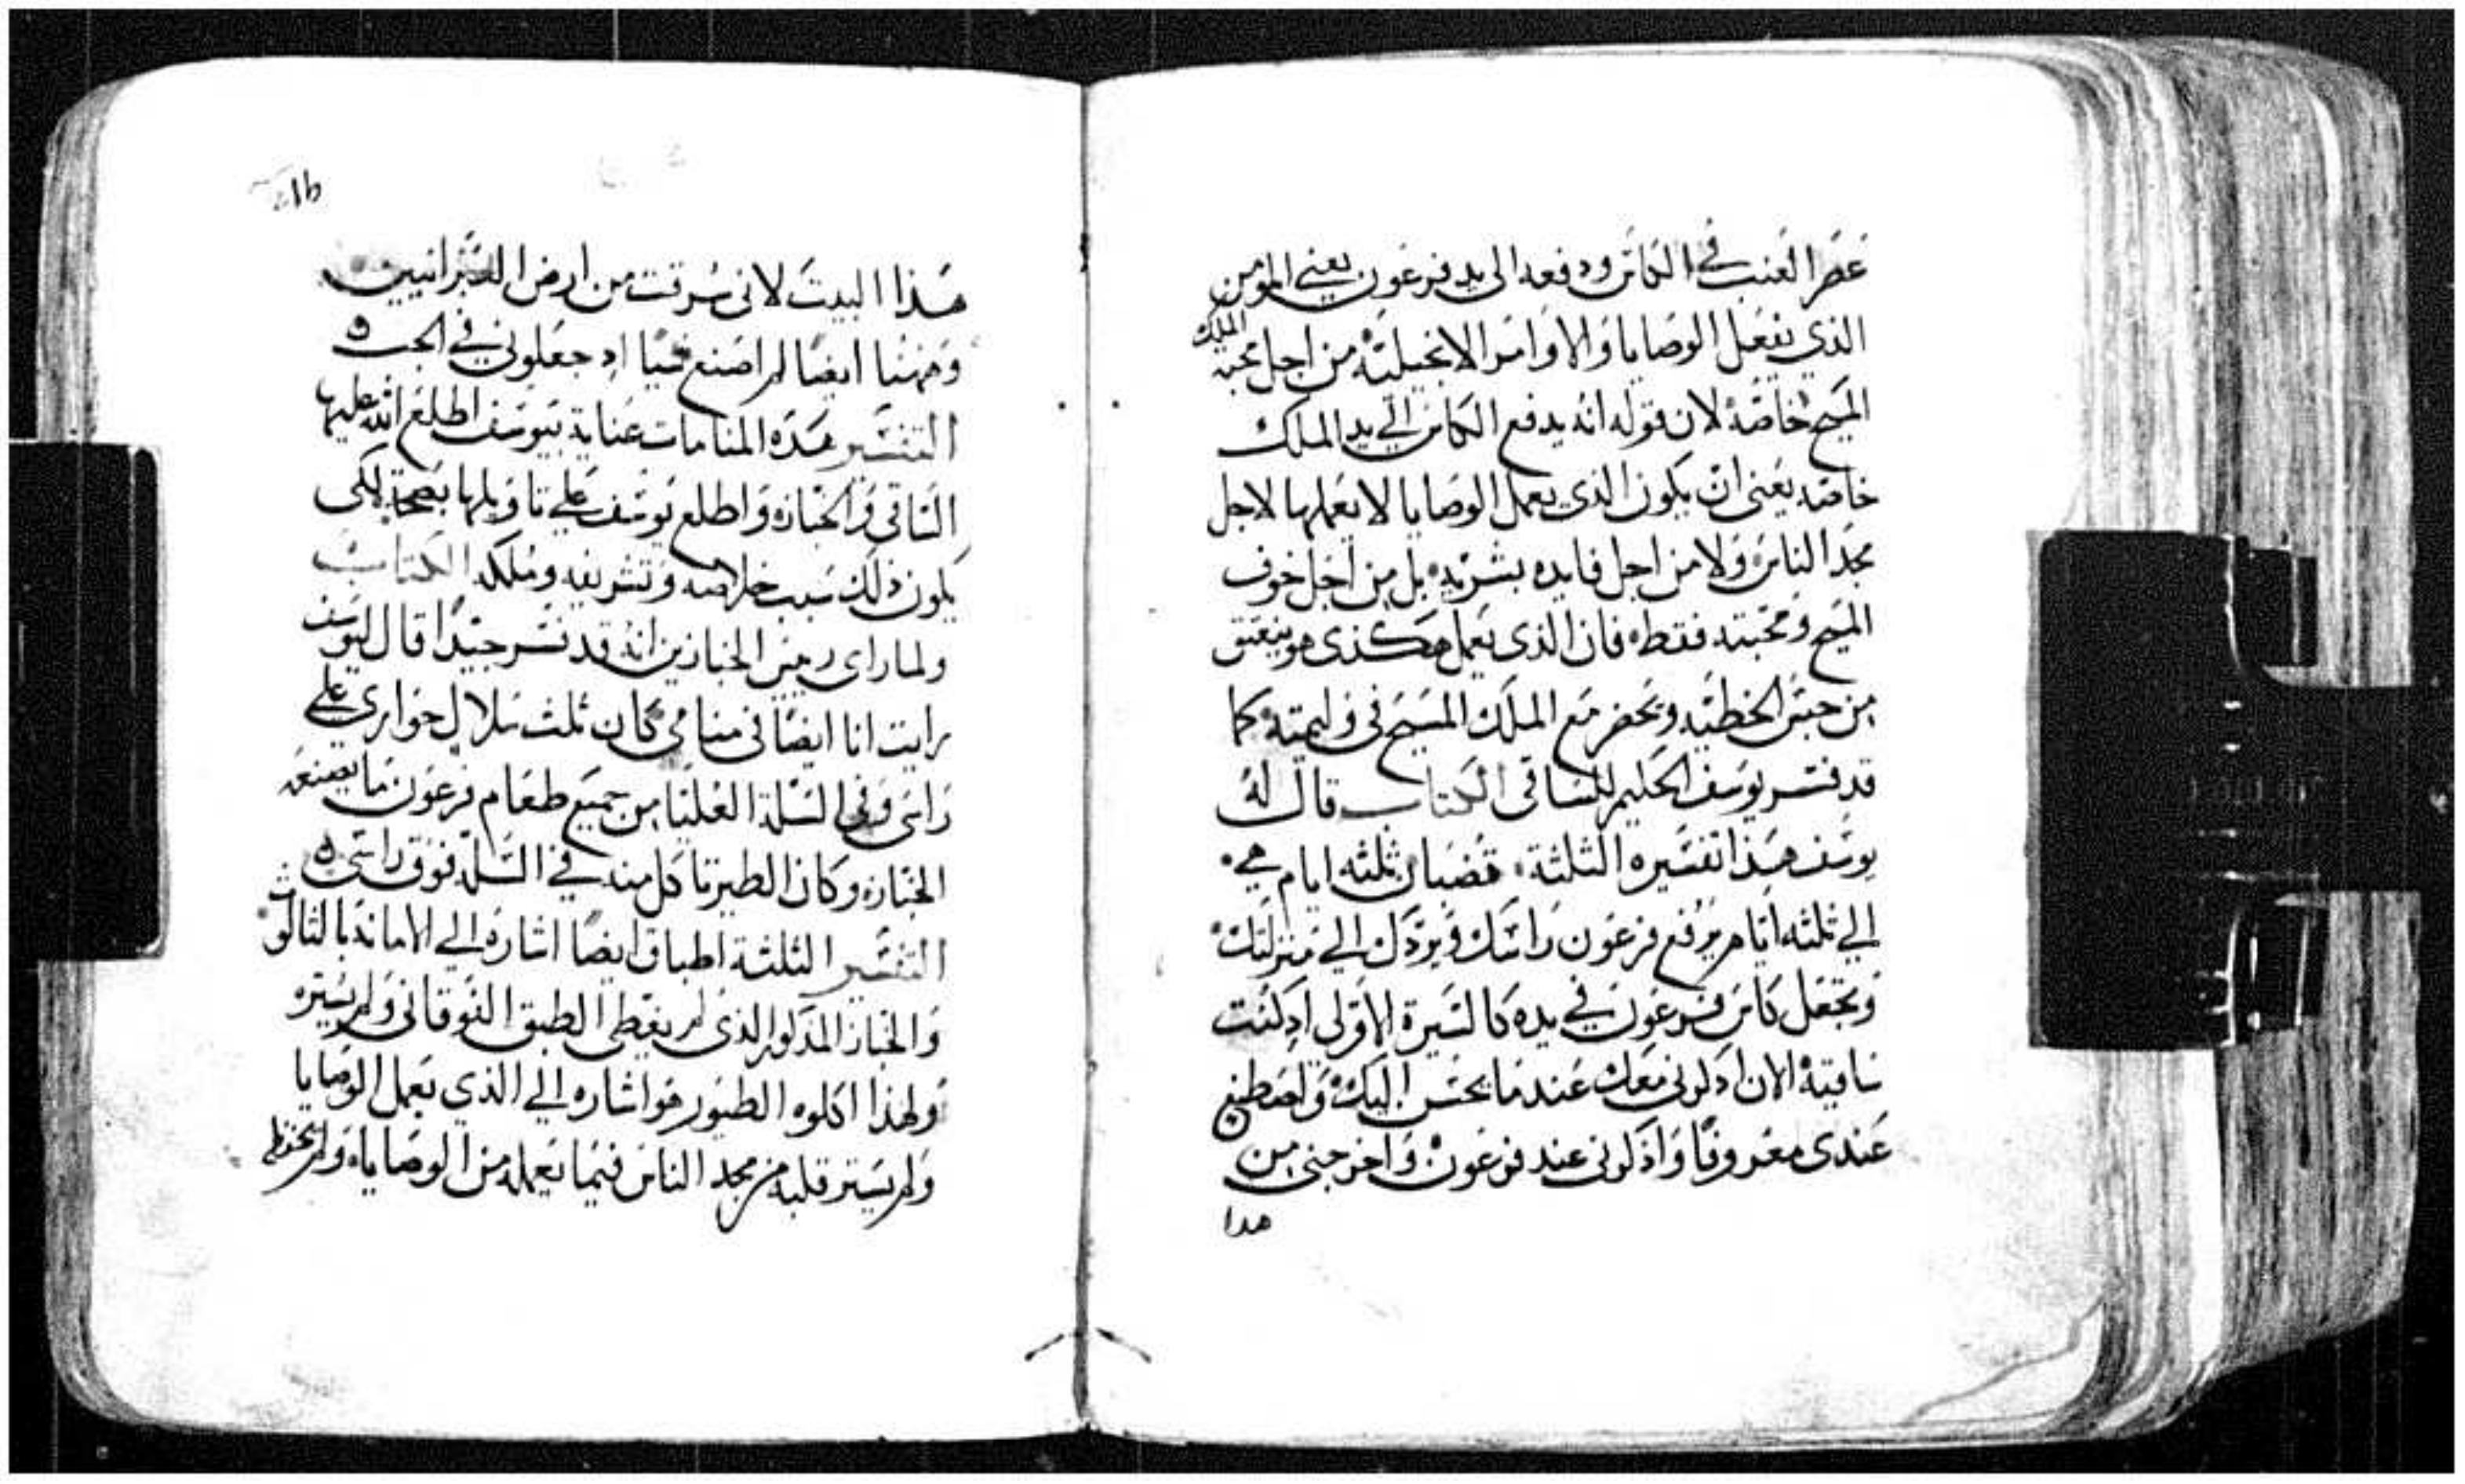 عصر العنب في الكاس ودفعه الى يد فرعون يعني المومن
الذي يفعل الوصايا والاوامر الانجيلية من اجل محبة الملك
المسيح خاصة لان قوله انه يدفع الكاس الي يد الملك
خاصه يعني ان يكون الذي يعمل الوصايا لا يعملها لاجل
مجد الناس ولا من اجل فايده بشريه بل من اجل خوف
المسيح ومحبته فقط فان الذي يعمل هكذي هو ينعتق
من حبس الخطيه ويحضر مع الملك المسيح في وليمته كما
قد فسر يوسف الحليم للساقي الكتاب قال له
يوسف هذا تفسيره الثلثة قضبان ثلثه ايام هي
الي ثلثه ايام يرفع فرعون راسك ويردك الي منزلتك
وتجعل كاس فرعون في يده كالسيرة الاولى اد كنت
ساقيه الان ادكرني معك عندما يحسن اليك واصطنع
عندي معروفا واذكرني عند فرعون واخرجني من
هدا
هذا البيت لاني سرقت من ارض العبرانيين
وههنا ايضا لم اصنع شيا اد جعلوني في الجب
التفسير هذه المنامات عناية بيوسف اطلع الله عليها
الساقي والخباز واطلع يوسف علي تاويلها بصحة لكي
يكون ذلك سبب خلاصه وتشريفه وملكه الكتاب
ولما راى ريس الخبازين انه قد فسر جيدا قال ليوسف
رايت انا ايضا في منامي كان ثلث سلال حواري علي
راسي وفي السلة العليا من جميع طعام فرعون ما يصنعه
الخباز وكان الطير تاكل منه في السله فوق راسي
التفسير الثلثة اطباق ايضا اشاره الي الامانة بالثالوث
والخباز المدكور الذي لم يغطي الطبق الفوقاني ولم يستره
ولهذا اكلوه الطيور هو اشاره الي الذي يعمل الوصايا
ولم يستر قلبه من مجد الناس فيما يعمله من الوصايا ولم يحفظ